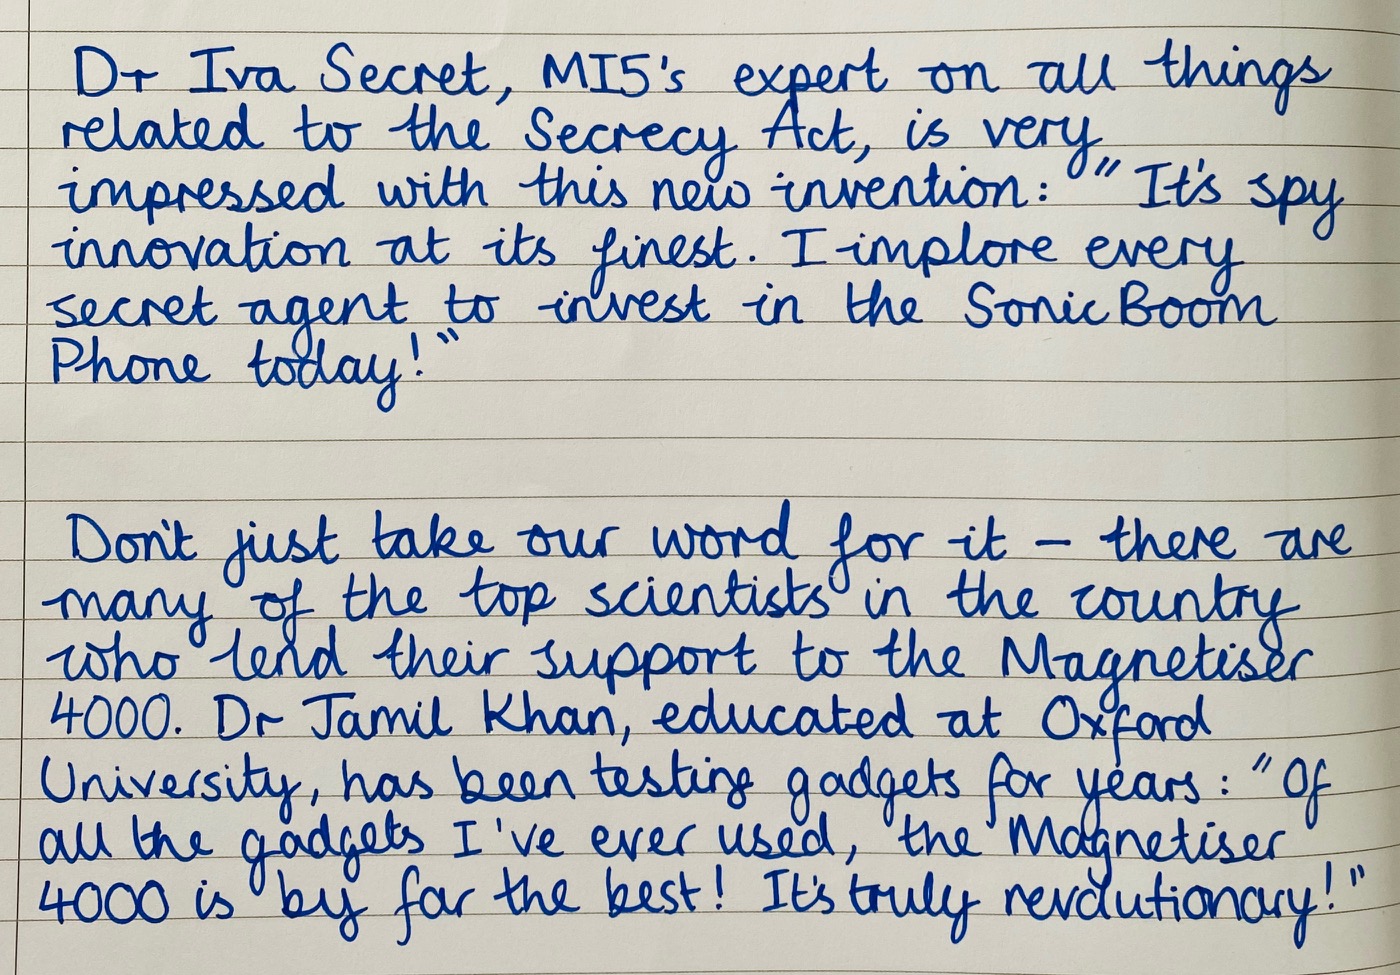 Dr Iva Secret, MI5's expert on all things
related to the Secrecy Act, is very
impressed with this new invention: "It's spy
innovation at its finest. I implore every
secret agent to invest in the Sonic Boom
Phone today!"
Don't just take our word for it – there are
many of the top scientists in the country
who lend their support to the Magnetiser
4000. Dr Jamil Khan, educated at Oxford
University, has been testing gadgets for years: "Of
all the gadgets I've ever used, the Magnetiser
4000 is by far the best! It's truly revolutionary!"